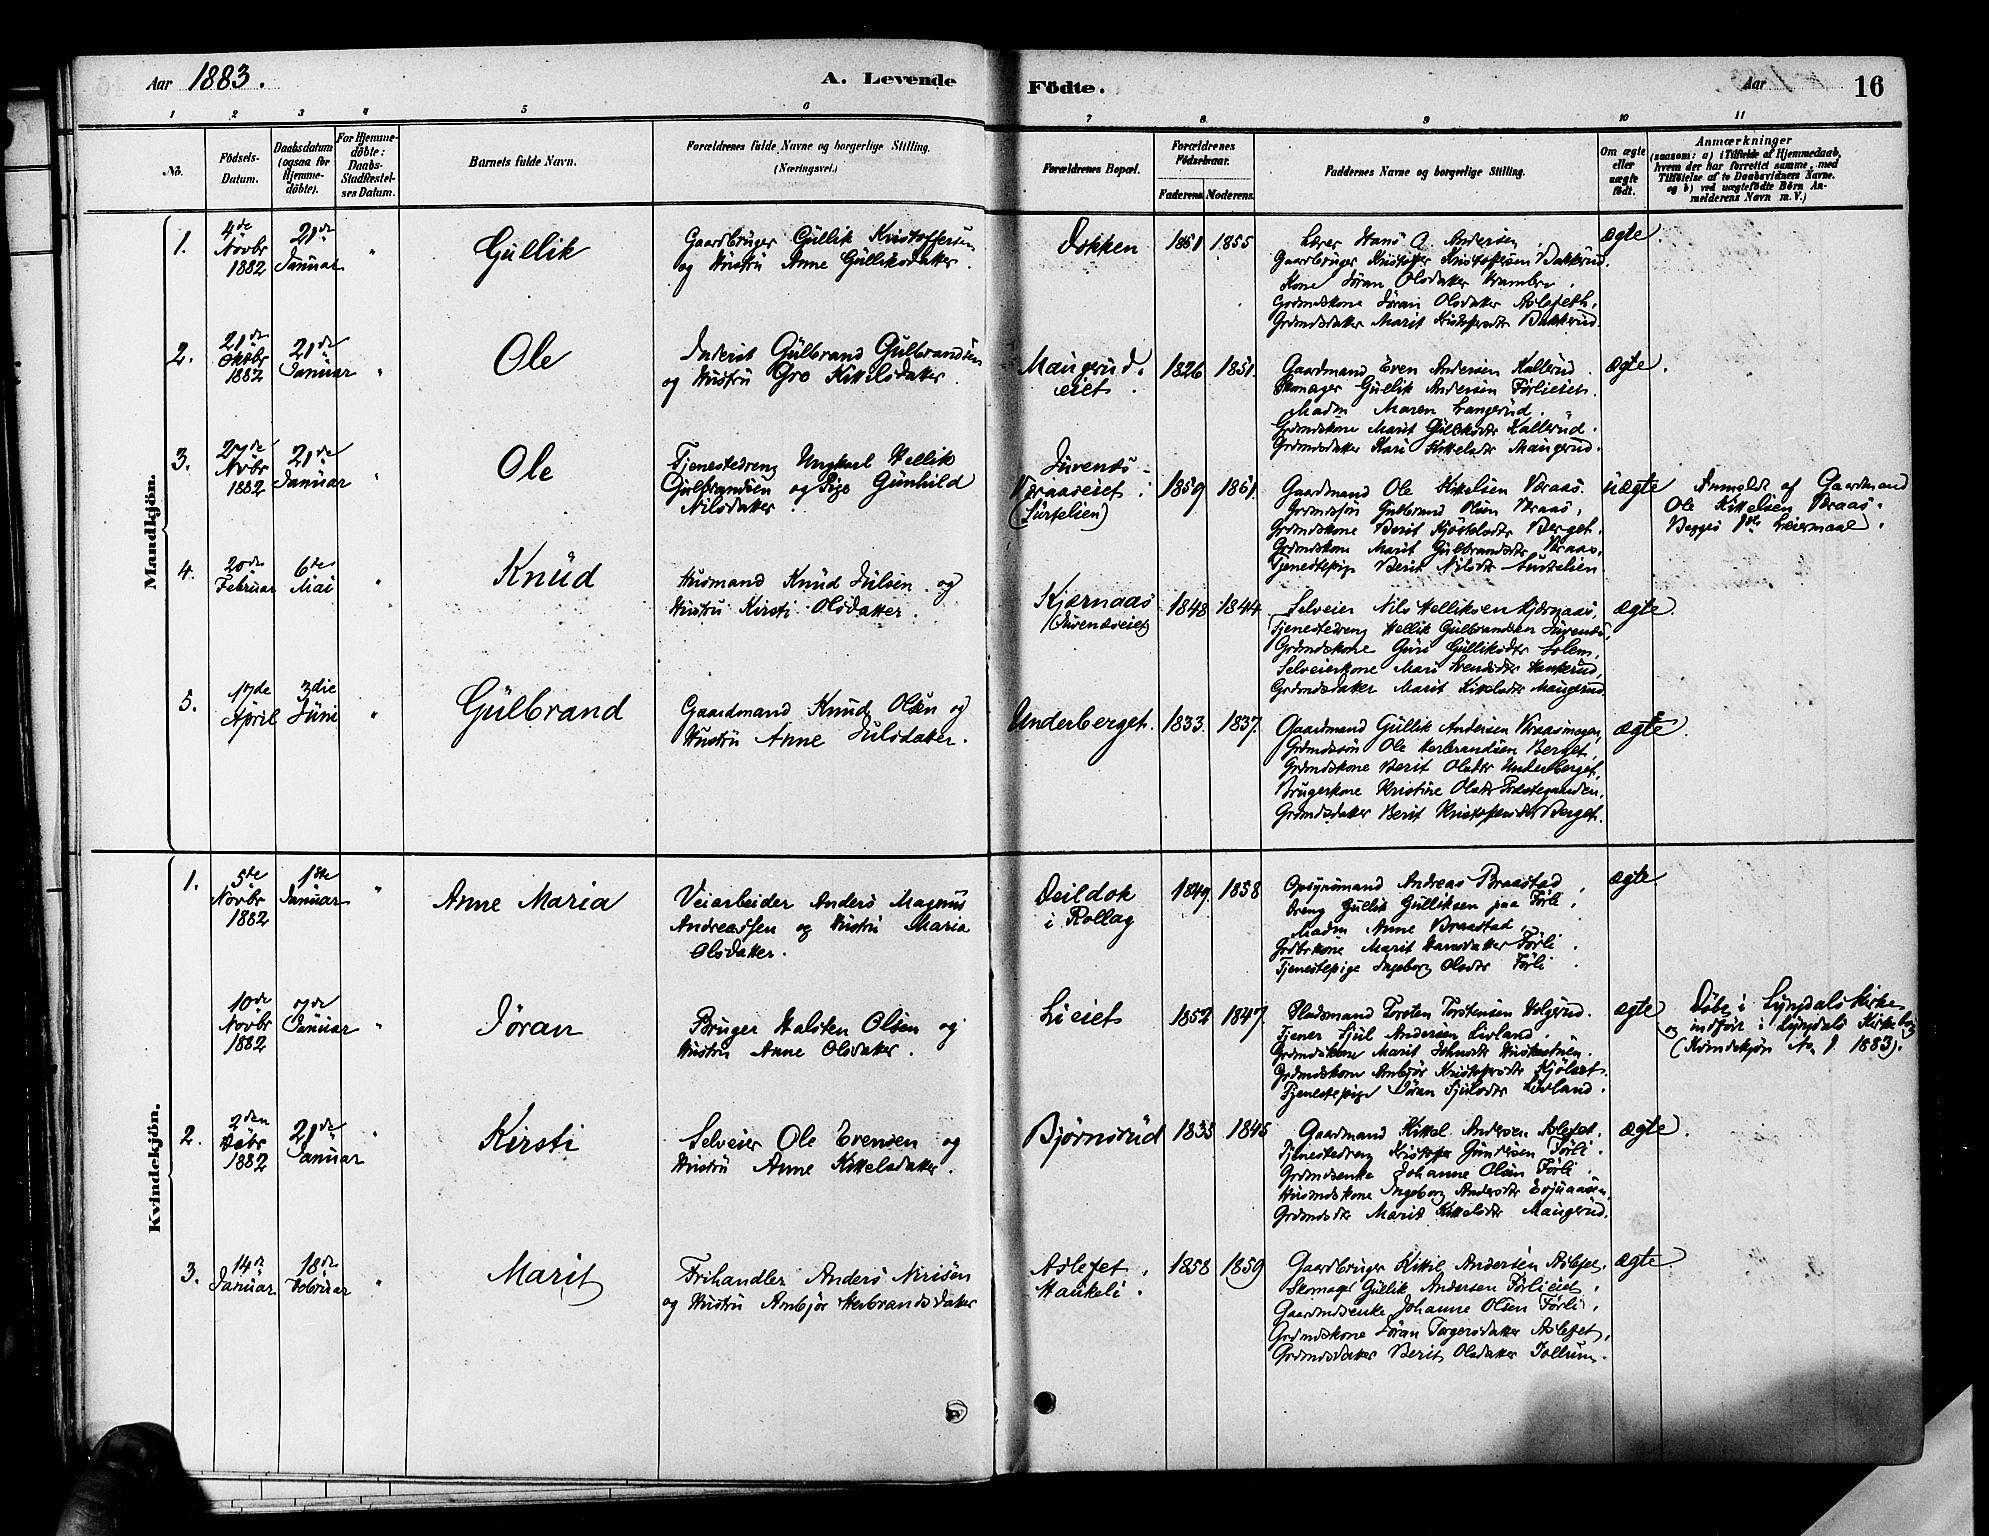 Aar 1883. A. Levende Fødte. Aar 16
1 2 3 4 5 6 7 8 9 10 11
No. Fødsels-Datum. Daabsdatum (ogsaa for Hjemmedøbte). For Hjemmedøbte: Daabs-Stadfæstelses Datum. Barnets fulde Navn. Forældrenes fulde Navne og borgerlige Stilling. (Næringsvei.) Forældrenes Bopæl. Forældrenes Fødselsaar. Faderens. Moderens. Faddernes Navne og borgerlige Stilling. Om ægte eller uægte født. Anmærkninger (saasom: a) i Tilfælde af Hjemmedaab, hvem der har forrettet samme, med Tilføielse af to Daabsvidners Navne. og b) ved uægtefødte Børn Anmelderens Navn m. V.)
Mandkjön.
1. 4de Novbr 1882 21de Januar " Gullik Gaardbruger Gullik Kristoffersen
og Hustru Anne Gulliksdatter. Dokken 1851 1855 Lærer Hans O. Andersen ægte.
Gaardbruger Kristoffer Kristoffersen Bakkerud.
Kone Jøran Olsdatter
Grdmdskone Jøran Olsdatter Aslefeth.
Grdmdsdatter Marit Kristofersdtr Bakkerud.
2. 21de Oktbr 1882 21de Januar " Ole Inderst Gulbrand Gulbrandsen
og Hustru Gro Kittelsdatter. Maugerudeiet. 1826 1851. Gaardmand Even Andersen Kallerud. ægte.
Skomager Gullik Andersen Førlieiet.
Madm Maren Langerud.
Grdmdskone Marit Gulliksdtr Kallerud.
Grdmdsdatter Kari Kittelsdtr Maugerud.
3. 27de Novbr 1882 21de Januar " Ole Tjenestedreng Ungkarl Hellik
Gulbrandsen og Pige Gunhild
Nilsdatter. Juvenes-
Vraaseiet. () 1859 1861. Gaardmand Ole Kittelsen Vraas. uægte Anmeldt af Gaardmand
Ole Kittelsen Vraas.
Begges 1ste Leiermaal.
Grdmdssøn Gulbrand Olsen Vraas.
Grdmdskone Berit Berget.
Grdmdskone Marit Gulbrandsdtr Vraas.
Tjenestepige Berit Nilsdtr
4. 20de Februar 6te Mai " Knud Husmand Knud Julsen og
Hustru Kirsti Olsdatter. Kjørnaas
(Juveneseiet) 1848 1844. Selveier Nils Helliksen Kjørnaas, ægte.
Tjenestedreng Hellik Gulbrandsen Juvenes,
Grdmdskone Guri Gulliksdtr Solem,
Selveierkone Mari Svendsdtr
Grdmdsdatter Marit Kittelsdtr Maugerud.
5. 17de April 3die Juni " Gulbrand Gaardmand Knud Olsen og
Hustru Anne Julsdatter. Underberget. 1833. 1837. Gaardmand Gullik Andersen Vraasmogen, ægte.
Grdmdssøn Ole Herbrandsen Berget,
Grdmdskone Berit Olsdtr Underberget,
Brugerkone Kristine Olsdtr Præstegaarden,
Grdmdsdatter Berit Kristofersdtr Berget.
Kvindekjön.
1. 5te Novbr 1882 1ste Januar " Anne Maria Veiarbeider Anders Magnus
Andreassen og Hustru Maria
Olsdatter. Deildok
i Rollag 1849. 1858 Opsynsmand Andreas Braastad, ægte.
Dreng Gullik Gulliksen paa Førli,
Madm Anne Braastad,
Grdbrkone Marit Hansdatter Førli.
Tjenestepige Ingeborg Olsdtr Førli.
10de Novbr 1882 7de Januar " Jøran Bruger Halsten Olsen og
Hustru Anne Olsdatter. Lieiet 1852 1847. Pladsmand Torsten Torstensen Helgerud. ægte Døbt i Lyngdals Kirke
og indført i Lyngdals Kirkebog
(Kvindekjøn No 1 1883).
Tjener Sjul Andersen Livland.
Grdmdskone Marit
Grdmdskone Ambjør Kristofersdtr
Tjenestepige Jøran Sjulsdtr Livland.
2. 2den Debr 1882 21de Januar " Kirsti Selveier Ole Evensen og
Hustru Anne Kittelsdatter. Bjørnsrud 1835 1845 Gaardmand Kittel Andersen Aslefet. ægte.
Tjenestedreng Kristofer Gundersen Førli.
Grdmdsenke Johanne Olsen Førli.
Husmdskone Ingeborg Andersdtr
Grdmdsdtr Marit Kittelsdtr Maugerud.
3. 14de Januar 18de Februar " Marit Frihandler Anders Nirisen
og Hustru Ambjør Herbrandsdatter Aslefet,
Haukeli. 1858 1859 Gaardbruger Kittil Andersen Aslefet. ægte.
Skomager Gullik Andersen Førlieiet,
Gaardmdsenke Johanne Olsen Førli,
Grdmdskone Jøran Torgersdatter Aslefet,
Grdmdsdatter Berit Olsdatter